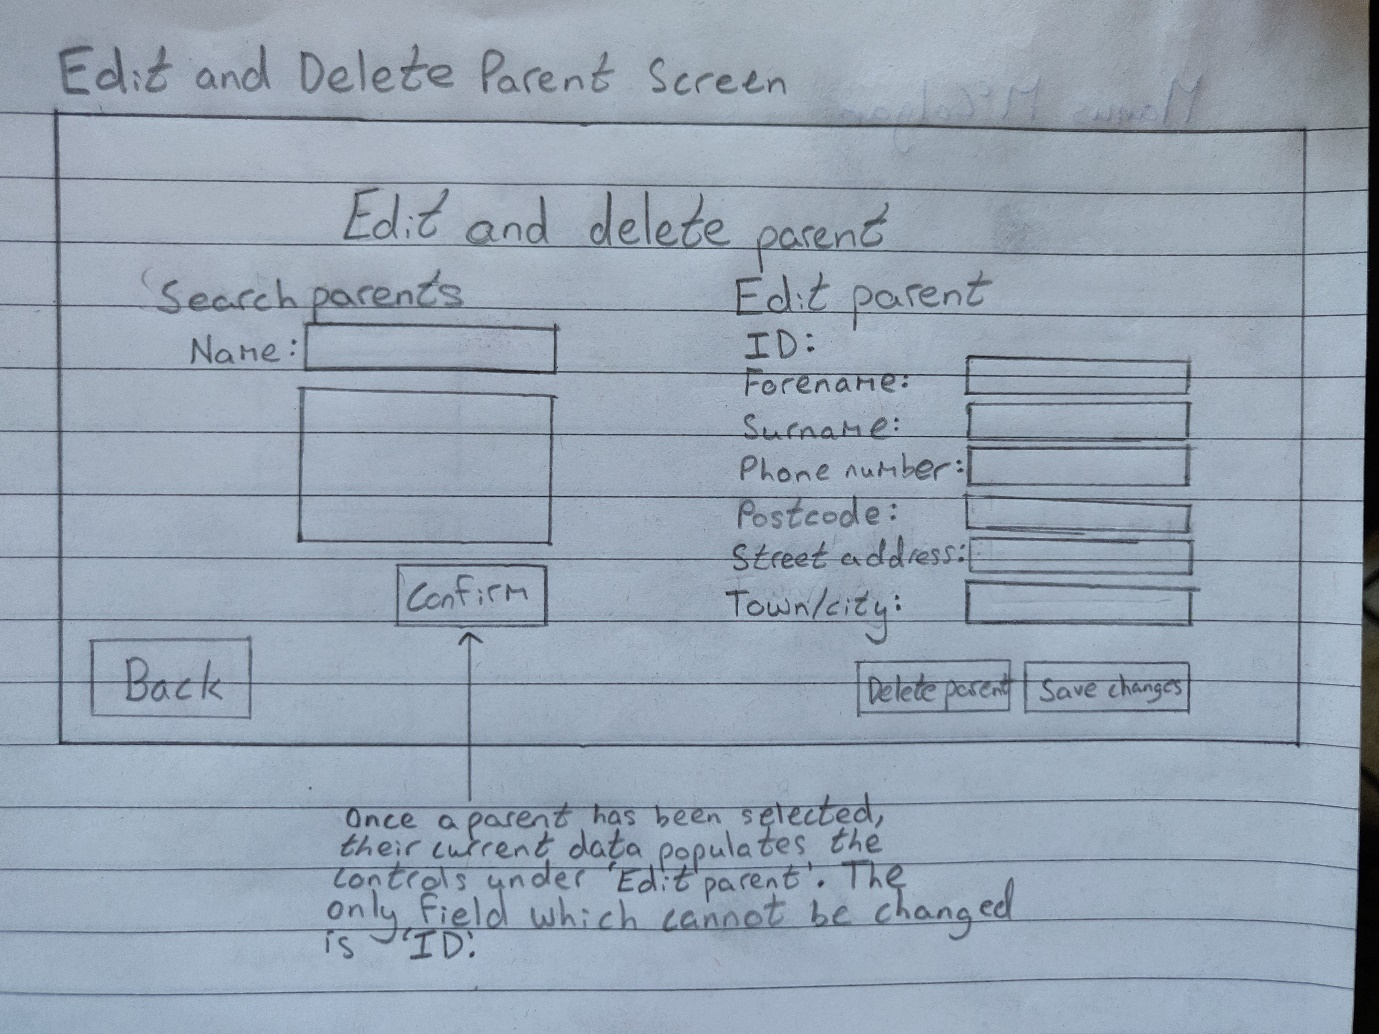 Edit and Delete Parent Screen
Edit and delete parent
Search parents
Name:
Confirm
Back
Edit parent
ID:
Forename:
Surname:
Phone number:
Postcode:
Street address:
Town/city:
Delete parent
Save changes
Once a parent has been selected,
their current data populates the
controls under 'Edit parent'. The
only field which cannot be changed
is 'ID'.